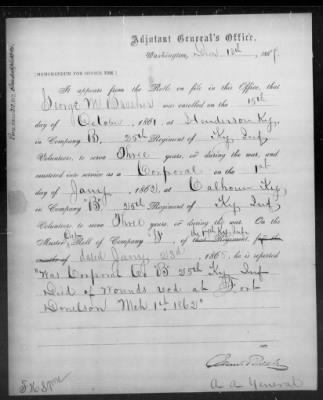 Adjutant General's Office,
Washington, Decr 12th, 1867.
[MEMORANDUM FOR OFFICE USE.]
It appears from the Rolls on file in this Office, that
George W. was enrolled on the 15th
day of October, 1861, at Henderson Ky,
in Company B, 25th Regiment of Ky Inf,
Volunteers, to serve Three years, or during the war, and
mustered into service as a Corporal on the 1st
day of Jany, 1862, at Calhoun Ky,
in Company "B", 25th Regiment of Ky Inf,
Volunteers, to serve Three years, or during the war. On the
Muster Out Roll of Company of Regiment,
dated Jany 23d, 1865, he is reported
"Was Corporal Co B 25th Ky Inf
Died of wounds recd at Fort
Donelson Mch 1st 1862"
A. A. General